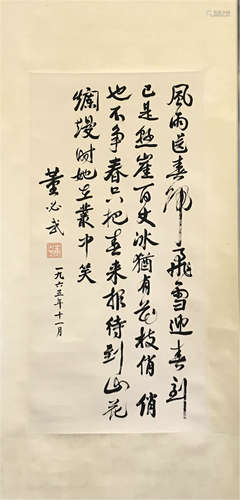 風雨送春归飛雪迎春到
已是懸崖百丈冰猶有花枝俏俏
也不争春只把春来报待到山花
爛熳时她在叢中笑
董必武
一九六五年十一月